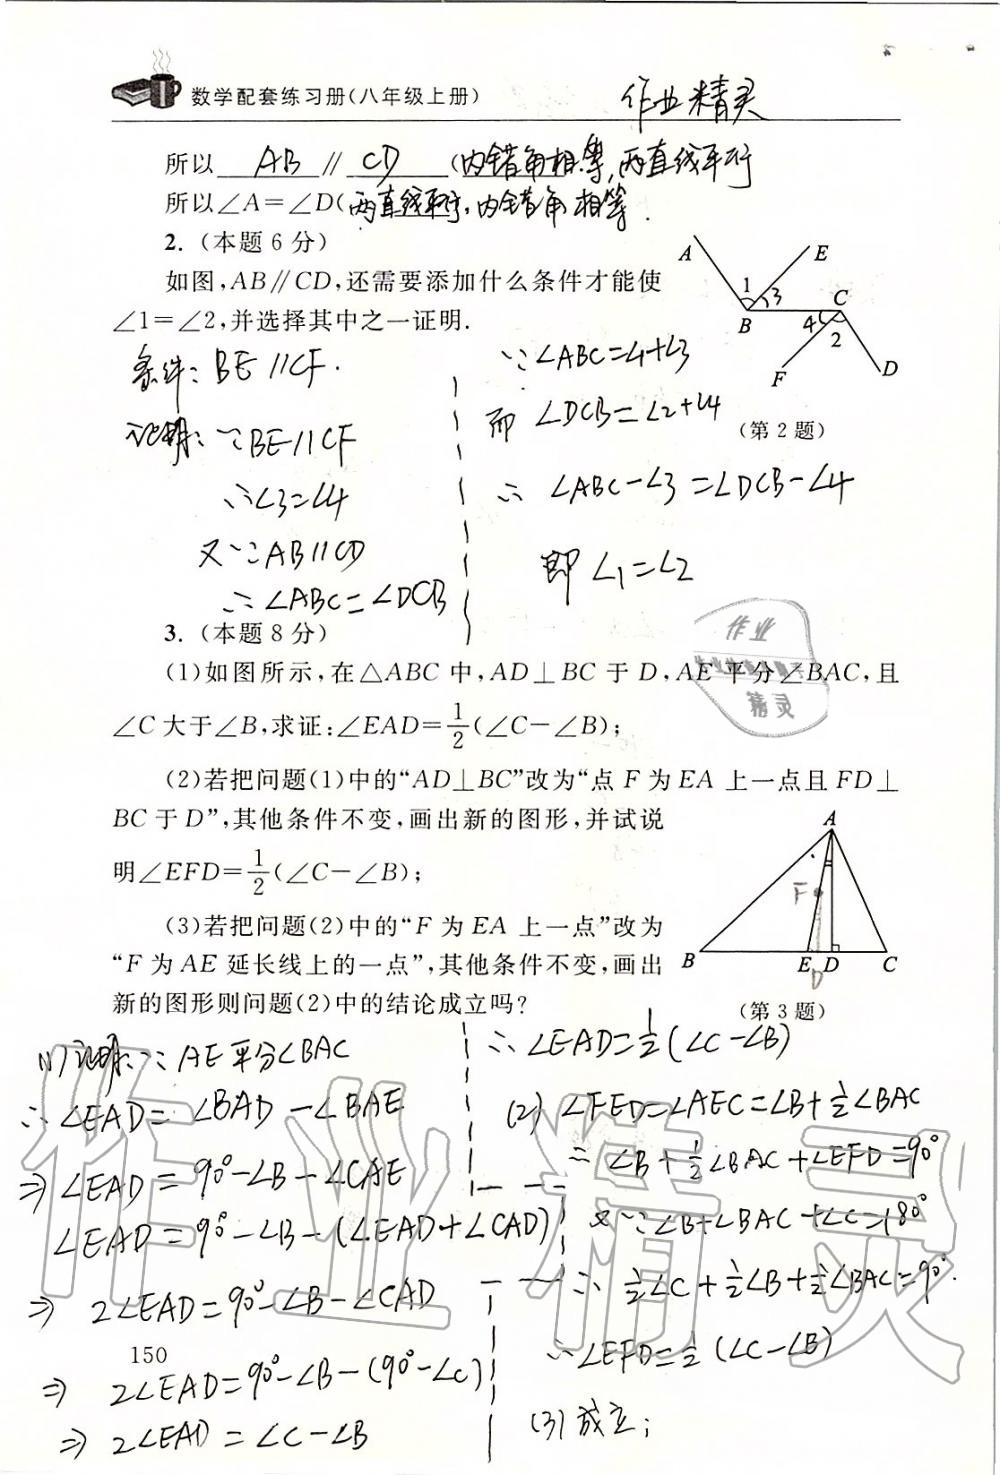 数学配套练习册(八年级上册)
作业精灵
所以 AB // CD (内错角相等,两直线平行
所以∠A=∠D(两直线平行,内错角相等.
2.(本题6分)
如图,AB∥CD,还需要添加什么条件才能使
∠1=∠2,并选择其中之一证明.
A
E
1
3
B
C
4
2
F
D
(第2题)
条件: BE//CF.
证明: ∵BE//CF
∴∠3=∠4
又∵AB//CD
∴∠ABC=∠DCB
∵∠ABC=∠1+∠3
而 ∠DCB=∠2+∠4
∴ ∠ABC-∠3=∠DCB-∠4
即 ∠1=∠2
3.(本题8分)
(1)如图所示,在△ABC中,AD⊥BC于D,AE平分∠BAC,且
∠C大于∠B,求证:∠EAD=1/2(∠C-∠B);
(2)若把问题(1)中的“AD⊥BC”改为“点F为EA上一点且FD⊥
BC于D”,其他条件不变,画出新的图形,并试说
明∠EFD=1/2(∠C-∠B);
(3)若把问题(2)中的“F为EA上一点”改为
“F为AE延长线上的一点”,其他条件不变,画出
新的图形则问题(2)中的结论成立吗?
作业
精灵
A
F
B
E
D
D
C
(第3题)
(1)证明:∵AE平分∠BAC
∴∠EAD=∠BAD-∠BAE
⇒∠EAD=90°-∠B-∠CAE
∠EAD=90°-∠B-(∠EAD+∠CAD)
⇒ 2∠EAD=90°-∠B-∠CAD
150
⇒ 2∠EAD=90°-∠B-(90°-∠C)
⇒ 2∠EAD=∠C-∠B
∴∠EAD=1/2(∠C-∠B)
(2)∠FED=∠AEC=∠B+1/2∠BAC
∴∠B+1/2∠BAC+∠EFD=90°
又∵∠B+∠BAC+∠C=180°
∴1/2∠C+1/2∠B+1/2∠BAC=90°.
∴∠EFD=1/2(∠C-∠B)
(3)成立;
作业精灵